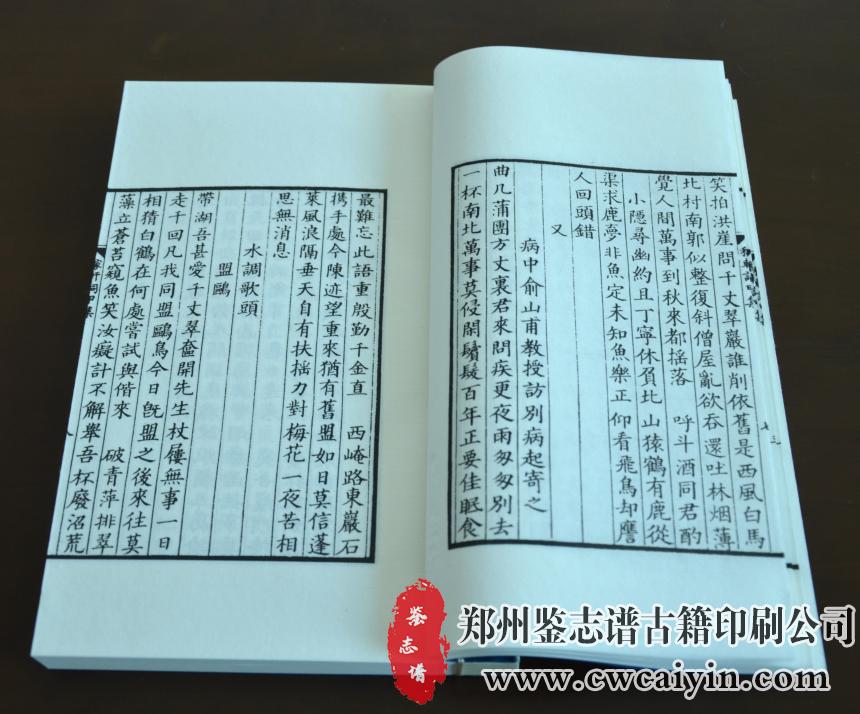 笑拍洪崖問千丈翠巖誰削依舊是西風白馬
北村南郭似整復斜僧屋亂欲吞還吐林烟薄
覺人間萬事到秋來都揺落 呼斗酒同君酌
小隱尋幽約且丁寧休負北山猿鶴有鹿從
渠求鹿夢非魚定未知魚樂正仰看飛鳥却譍
人回頭錯
又
病中俞山甫教授訪別病起寄之
曲几蒲團方丈裏君來問疾更夜雨匆匆別去
一杯南北萬事莫侵閒鬢髮百年正要佳眠食
最難忘此語重殷勤千金直 西崦路東巖石
携手處今陳迹望重來猶有舊盟如日莫信蓬
萊風浪隔垂天自有扶揺力對梅花一夜苦相
思無消息
水調歌頭
盟鷗
帶湖吾甚愛千丈翠奩開先生杖屨無事一日
走千回凡我同盟鷗鳥今日旣盟之後來往莫
相猜白鶴在何處嘗試與偕來 破青萍排翠
藻立蒼苔窺魚笑汝癡計不解舉吾杯廢沼荒
八
鉴志谱
郑州鉴志谱古籍印刷公司
www.cwcaiyin.com